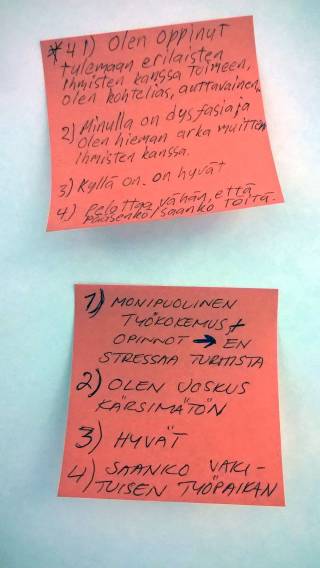 *41) Olen oppinut
tulemaan erilaisten
ihmisten kanssa toimeen,
olen kohtelias, auttavainen.
2) Minulla on dysfasia ja
olen hieman arka muitten
ihmisten kanssa.
3) Kyllä on. on hyvät
4) Pelottaa vähän, että
pääsenkö/saanko töitä.
1) MONIPUOLINEN
TYÖKOKEMUS +
OPINNOT → EN
STRESSAA TURHISTA
2) OLEN JOSKUS
KÄRSIMÄTÖN
3) HYVÄT
4) SAANKO VAKI-
TUISEN TYÖPAIKAN